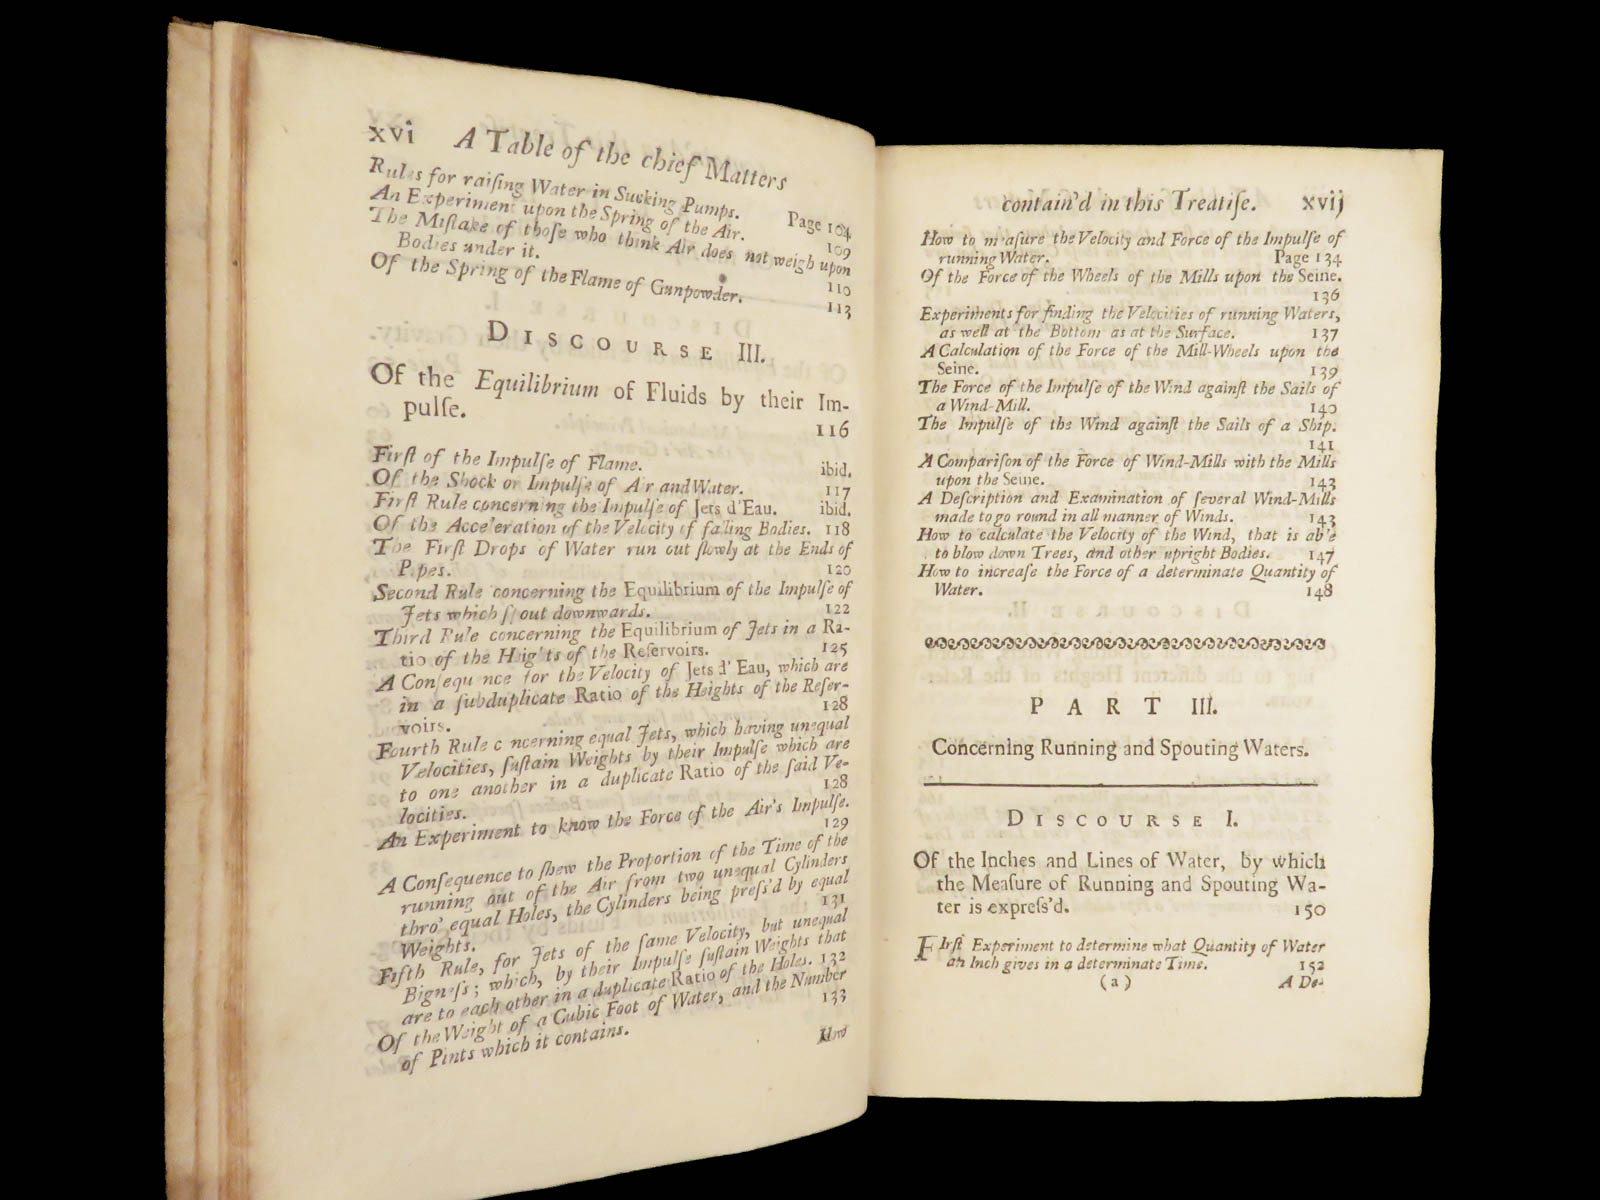 xvi A Table of the chief Matters
Rules for raiſing Water in Sucking Pumps. Page 104
An Experiment upon the Spring of the Air. 109
The Miſtake of thoſe who think Air does not weigh upon
Bodies under it. 110
Of the Spring of the Flame of Gunpowder. 113
DISCOURSE III.
Of the Equilibrium of Fluids by their Im-
pulſe. 116
Firſt of the Impulſe of Flame. ibid.
Of the Shock or Impulſe of Air and Water. 117
Firſt Rule concerning the Impulſe of Jets d'Eau. ibid.
Of the Acceleration of the Velocity of falling Bodies. 118
The Firſt Drops of Water run out ſlowly at the Ends of
Pipes. 120
Second Rule concerning the Equilibrium of the Impulſe of
Jets which ſpout downwards. 122
Third Rule concerning the Equilibrium of Jets in a Ra-
tio of the Heights of the Reſervoirs. 125
A Conſequence for the Velocity of Jets d'Eau, which are
in a ſubduplicate Ratio of the Heights of the Reſer-
voirs. 128
Fourth Rule concerning equal Jets, which having unequal
Velocities, ſuſtain Weights by their Impulſe which are
to one another in a duplicate Ratio of the ſaid Ve-
locities. 128
An Experiment to know the Force of the Air's Impulſe.
129
A Conſequence to ſhew the Proportion of the Time of the
running out of the Air from two unequal Cylinders
thro' equal Holes, the Cylinders being preſs'd by equal
Weights. 131
Fifth Rule, for Jets of the ſame Velocity, but unequal
Bigneſs; which, by their Impulſe ſuſtain Weights that
are to each other in a duplicate Ratio of the Holes. 132
Of the Weight of a Cubic Foot of Water, and the Number
of Pints which it contains. 133
How
contain'd in this Treatiſe. xvij
How to meaſure the Velocity and Force of the Impulſe of
running Water. Page 134
Of the Force of the Wheels of the Mills upon the Seine.
136
Experiments for finding the Velocities of running Waters,
as well at the Bottom as at the Surface. 137
A Calculation of the Force of the Mill-Wheels upon the
Seine. 139
The Force of the Impulſe of the Wind againſt the Sails of
a Wind-Mill. 140
The Impulſe of the Wind againſt the Sails of a Ship.
141
A Compariſon of the Force of Wind-Mills with the Mills
upon the Seine. 143
A Deſcription and Examination of ſeveral Wind-Mills
made to go round in all manner of Winds. 143
How to calculate the Velocity of the Wind, that is able
to blow down Trees, and other upright Bodies. 147
How to increaſe the Force of a determinate Quantity of
Water. 148
PART III.
Concerning Running and Spouting Waters.
DISCOURSE I.
Of the Inches and Lines of Water, by which
the Meaſure of Running and Spouting Wa-
ter is expreſs'd. 150
FIrſt Experiment to determine what Quantity of Water
an Inch gives in a determinate Time. 152
(a) A De-